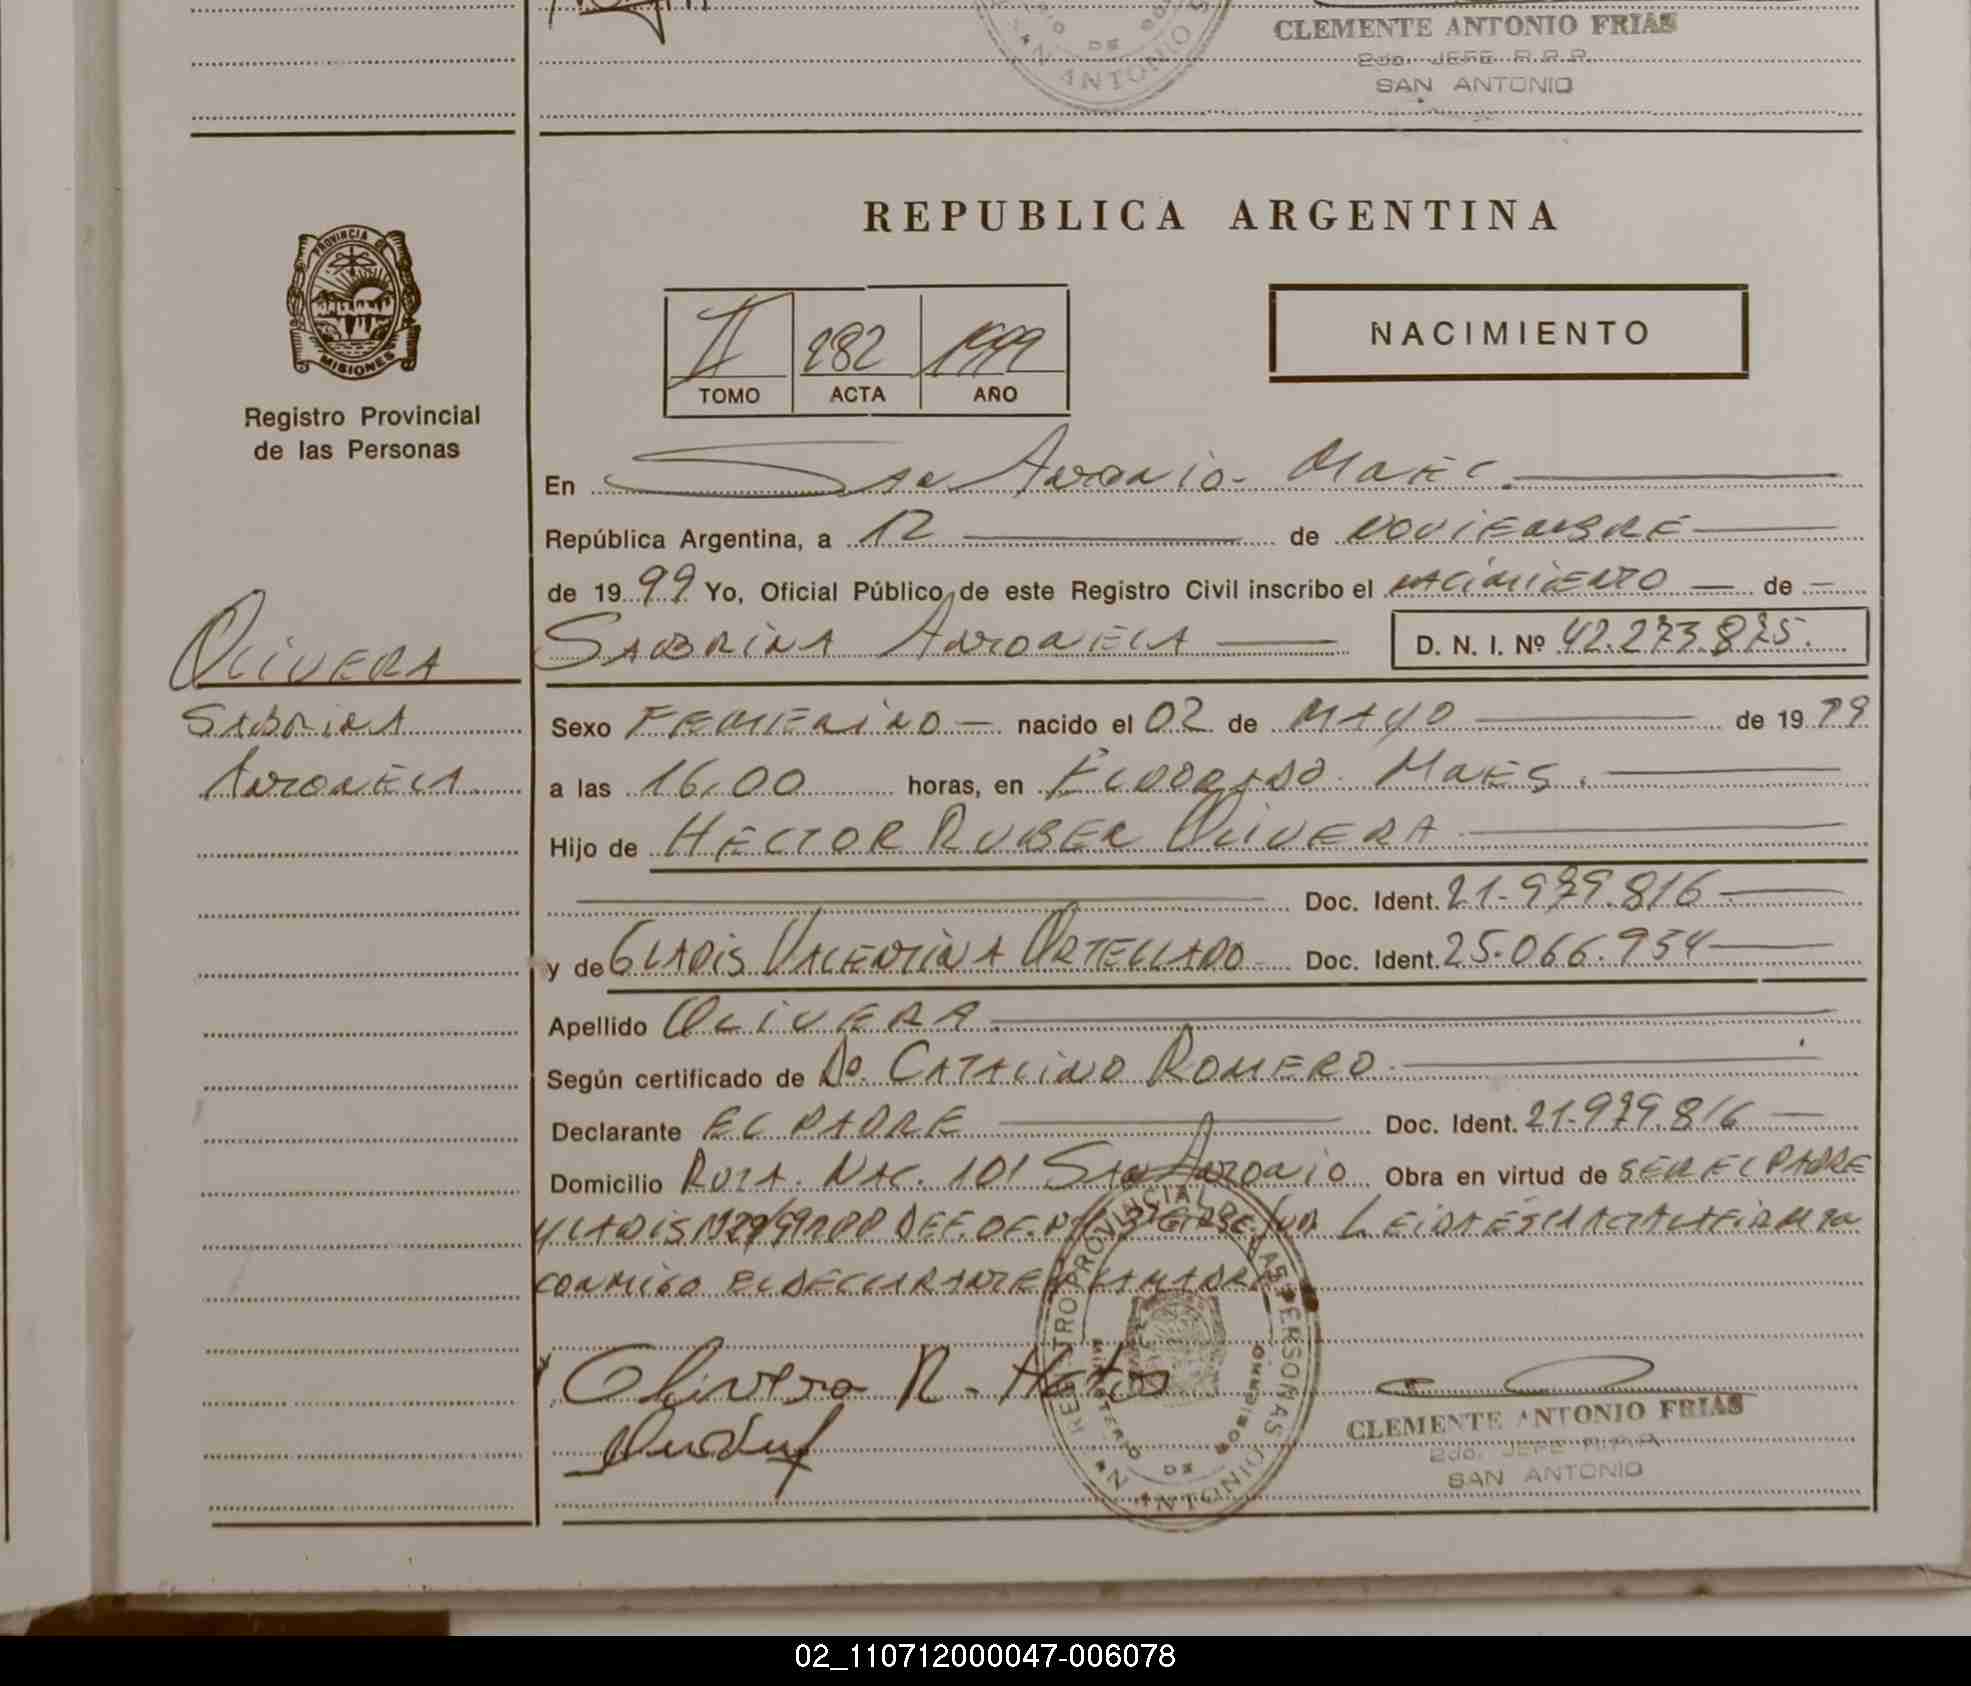 CLEMENTE ANTONIO FRIAS
2do. JEFE R.P.P.
SAN ANTONIO
SAN ANTONIO
DE
REPUBLICA ARGENTINA
PROVINCIA DE
MISIONES
Registro Provincial
de las Personas
II 282 1999
TOMO ACTA AÑO
NACIMIENTO
En San Antonio - Mnes.
República Argentina, a 12 de NOVIEMBRE
de 1999 Yo, Oficial Público de este Registro Civil inscribo el NACIMIENTO de
OLIVERA
SABRINA
ANTONELA
SABRINA ANTONELA D. N. I. Nº 42.273.875.
Sexo FEMENINO nacido el 02 de MAYO de 1999
a las 16,00 horas, en ELDORADO - MNES.
Hijo de HECTOR RUBEN OLIVERA
Doc. Ident. 21-979.816
y de GLADIS VALENTINA ORTELLADO Doc. Ident. 25.066.954
Apellido OLIVERA
Según certificado de Do. CATALINO ROMERO
Declarante EL PADRE Doc. Ident. 21-979.816
Domicilio RUTA. NAC. 101 SAN ANTONIO Obra en virtud de SER EL PADRE
Y LA DIS LEIDA ESTA ACTA LA FIRMAN
CONMIGO EL DECLARANTE Y LA MADRE
Olivera R. Hector
REGISTRO PROVINCIAL DE LAS PERSONAS
MINISTERIO DE GOBIERNO
SAN ANTONIO
CLEMENTE ANTONIO FRIAS
2do. JEFE R.P.P.
SAN ANTONIO
02_110712000047-006078